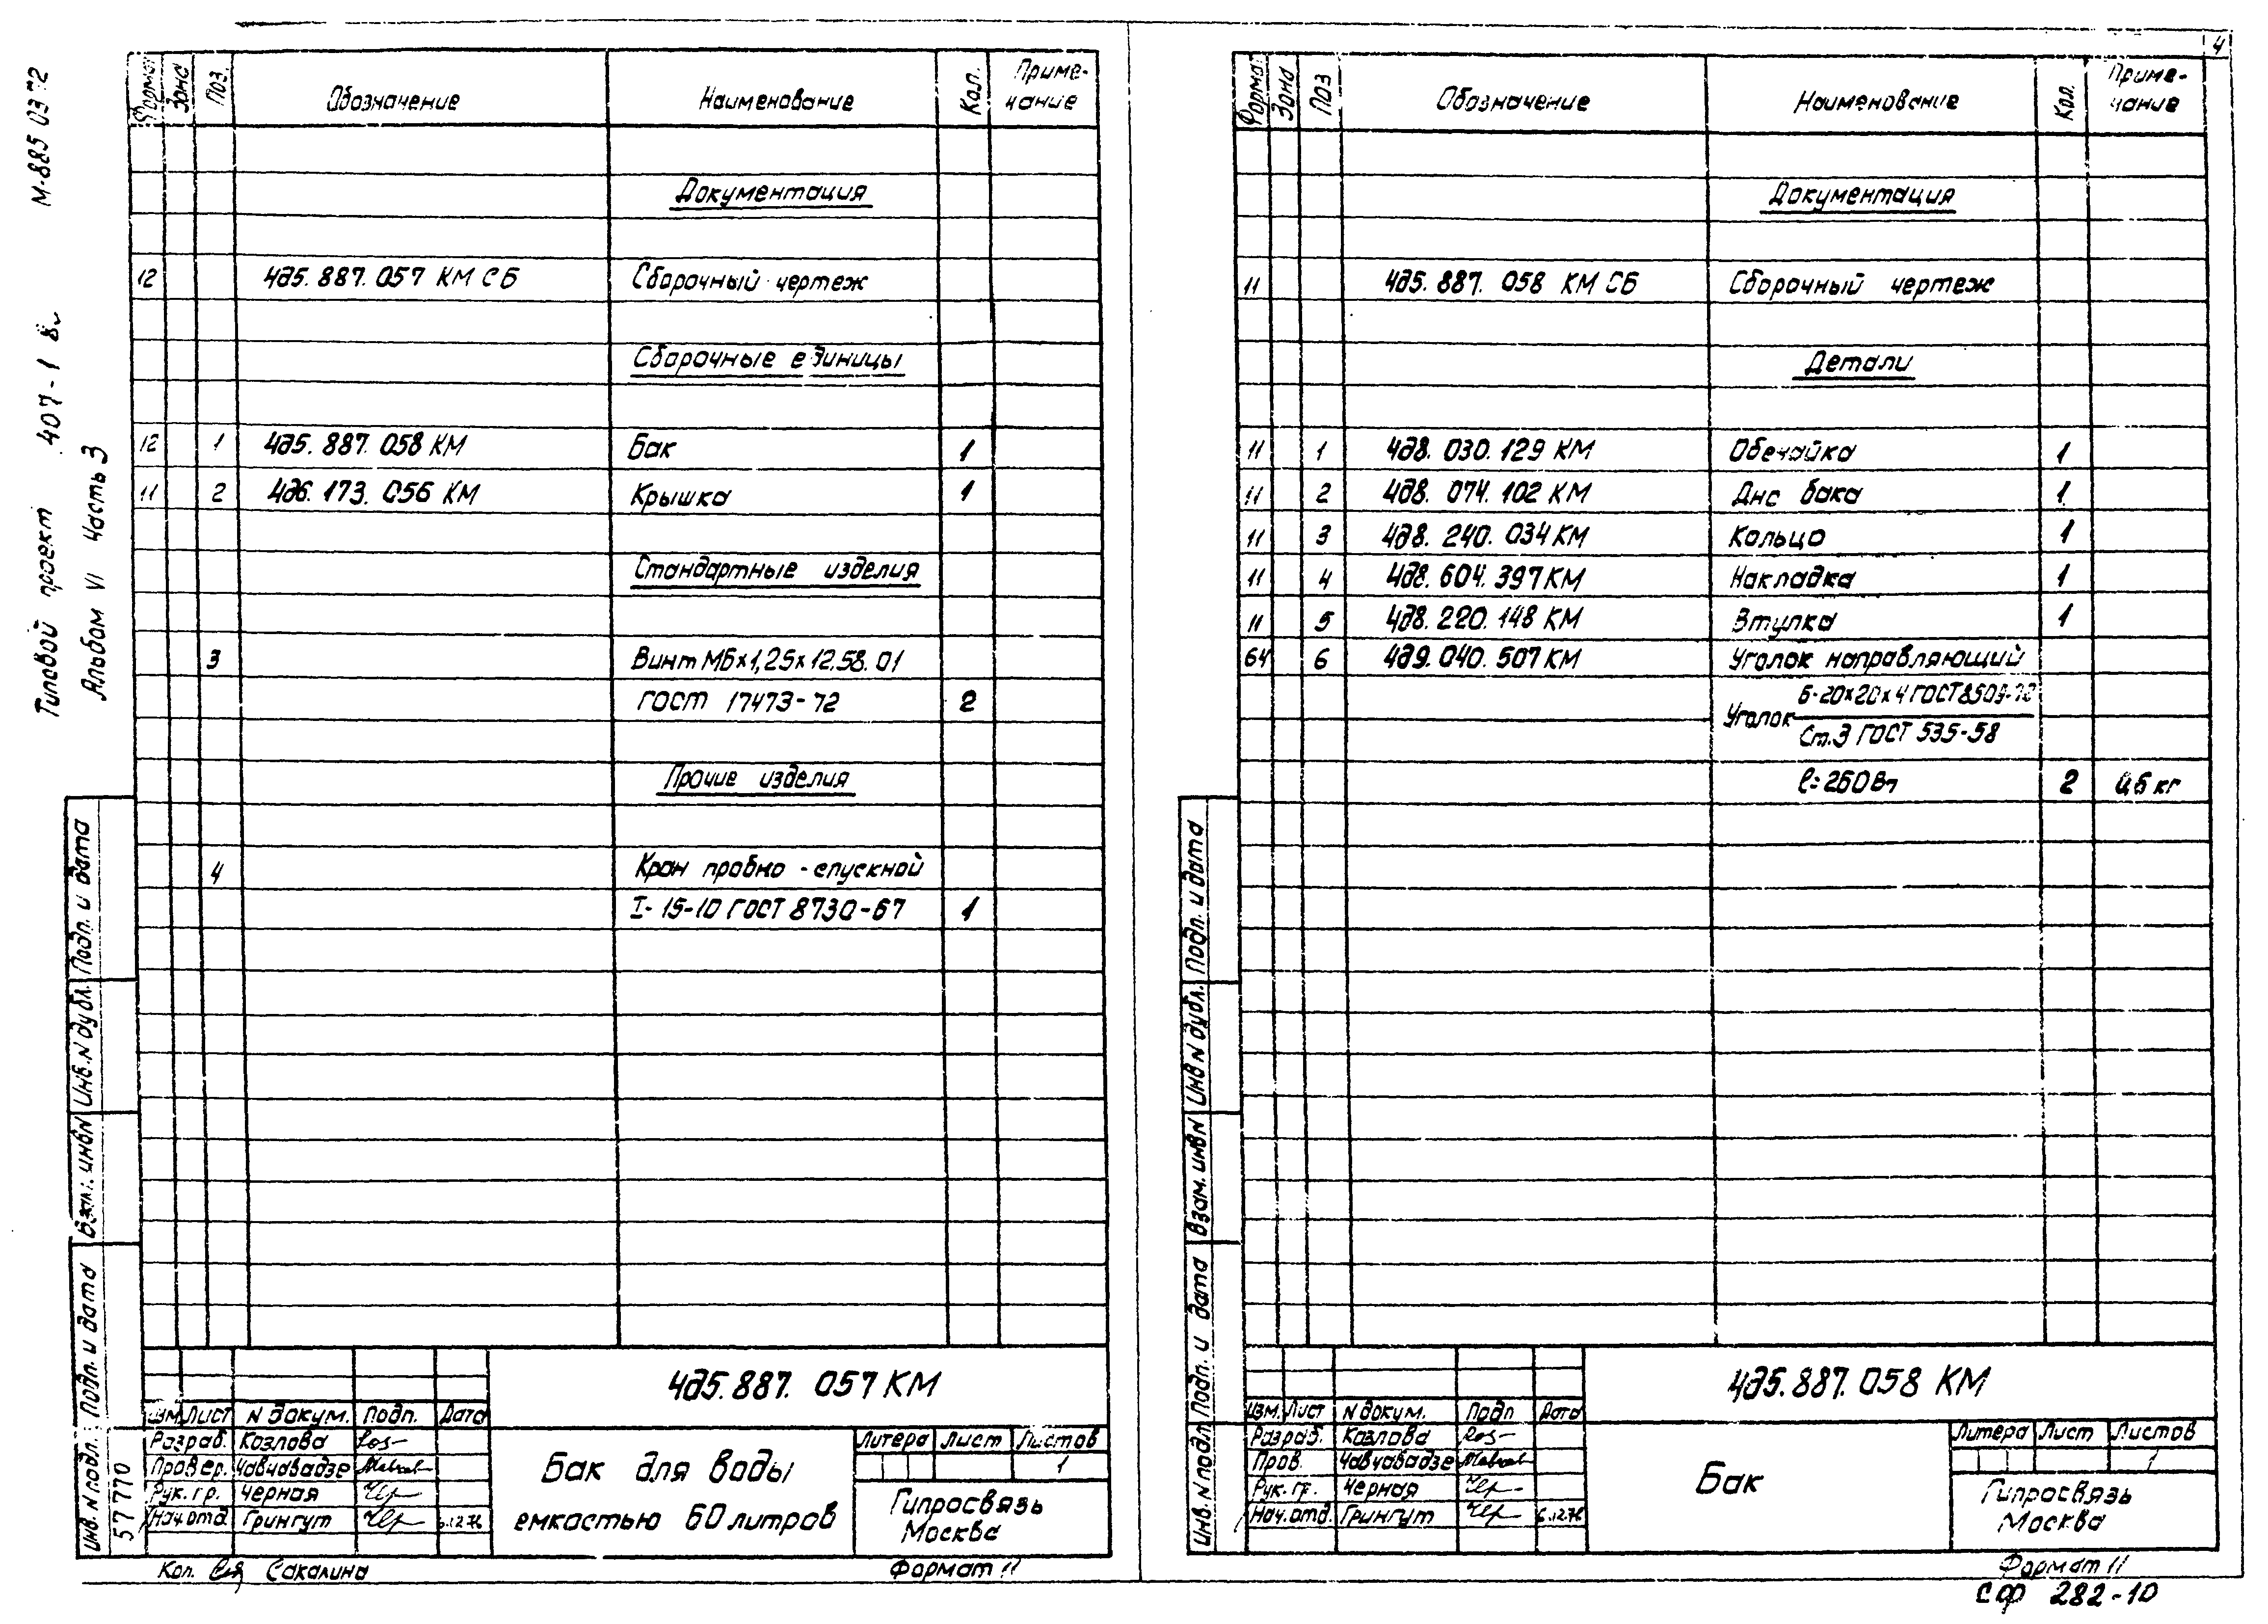 4
М-885 0372
Типовой проект 407-1
Альбом VI Часть 3
Формат Зона Поз. Обозначение Наименование Кол. Приме-
чание
Документация
12 4д5. 887. 057 КМ СБ Сборочный чертеж
Сборочные единицы
12 1 4д5. 887. 058 КМ Бак 1
11 2 4д6. 173. 056 КМ Крышка 1
Стандартные изделия
3 Винт М6х1,25х12.58.01
ГОСТ 17473-72 2
Прочие изделия
4 Кран пробно-спускной
I-15-10 ГОСТ 8730-67 1
Подп. и дата
Инв. N дубл.
Взам. инв N
Подп. и дата
Инв. N подл.
57770
4д5.887. 057 КМ
Изм Лист N докум. Подп. Дата
Разраб. Козлова
Провер. Чавчавадзе
Рук. гр. Черная
Нач. отд Грингут 6.12.76
Бак для воды
емкостью 60 литров
Литера Лист Листов
1
Гипросвязь
Москва
Кол. Сакалина
Формат 11
Формат Зона Поз Обозначение Наименование Кол. Приме-
чание
Документация
11 4д5. 887. 058 КМ СБ Сборочный чертеж
Детали
11 1 4д8. 030. 129 КМ Обечайка 1
11 2 4д8. 074. 102 КМ Дно бака 1
11 3 4д8. 240. 034 КМ Кольцо 1
11 4 4д8. 604. 397 КМ Накладка 1
11 5 4д8. 220. 148 КМ Втулка 1
64 6 4д9. 040. 507 КМ Уголок направляющий
Уголок Б-20х20х4 ГОСТ 8509-72
Ст.3 ГОСТ 535-58
2 0,6 кг
Подп. и дата
Инв N дубл.
Взам. инв N
Подп. и дата
Инв. N подл
4д5.887.058 КМ
Изм. Лист N докум. Подп Дата
Разраб. Козлова
Пров. Чавчавадзе
Рук. гр. Черная
Нач. отд. Грингут 6.12.76
Бак
Литера Лист Листов
1
Гипросвязь
Москва
Формат 11
СФ 282-10